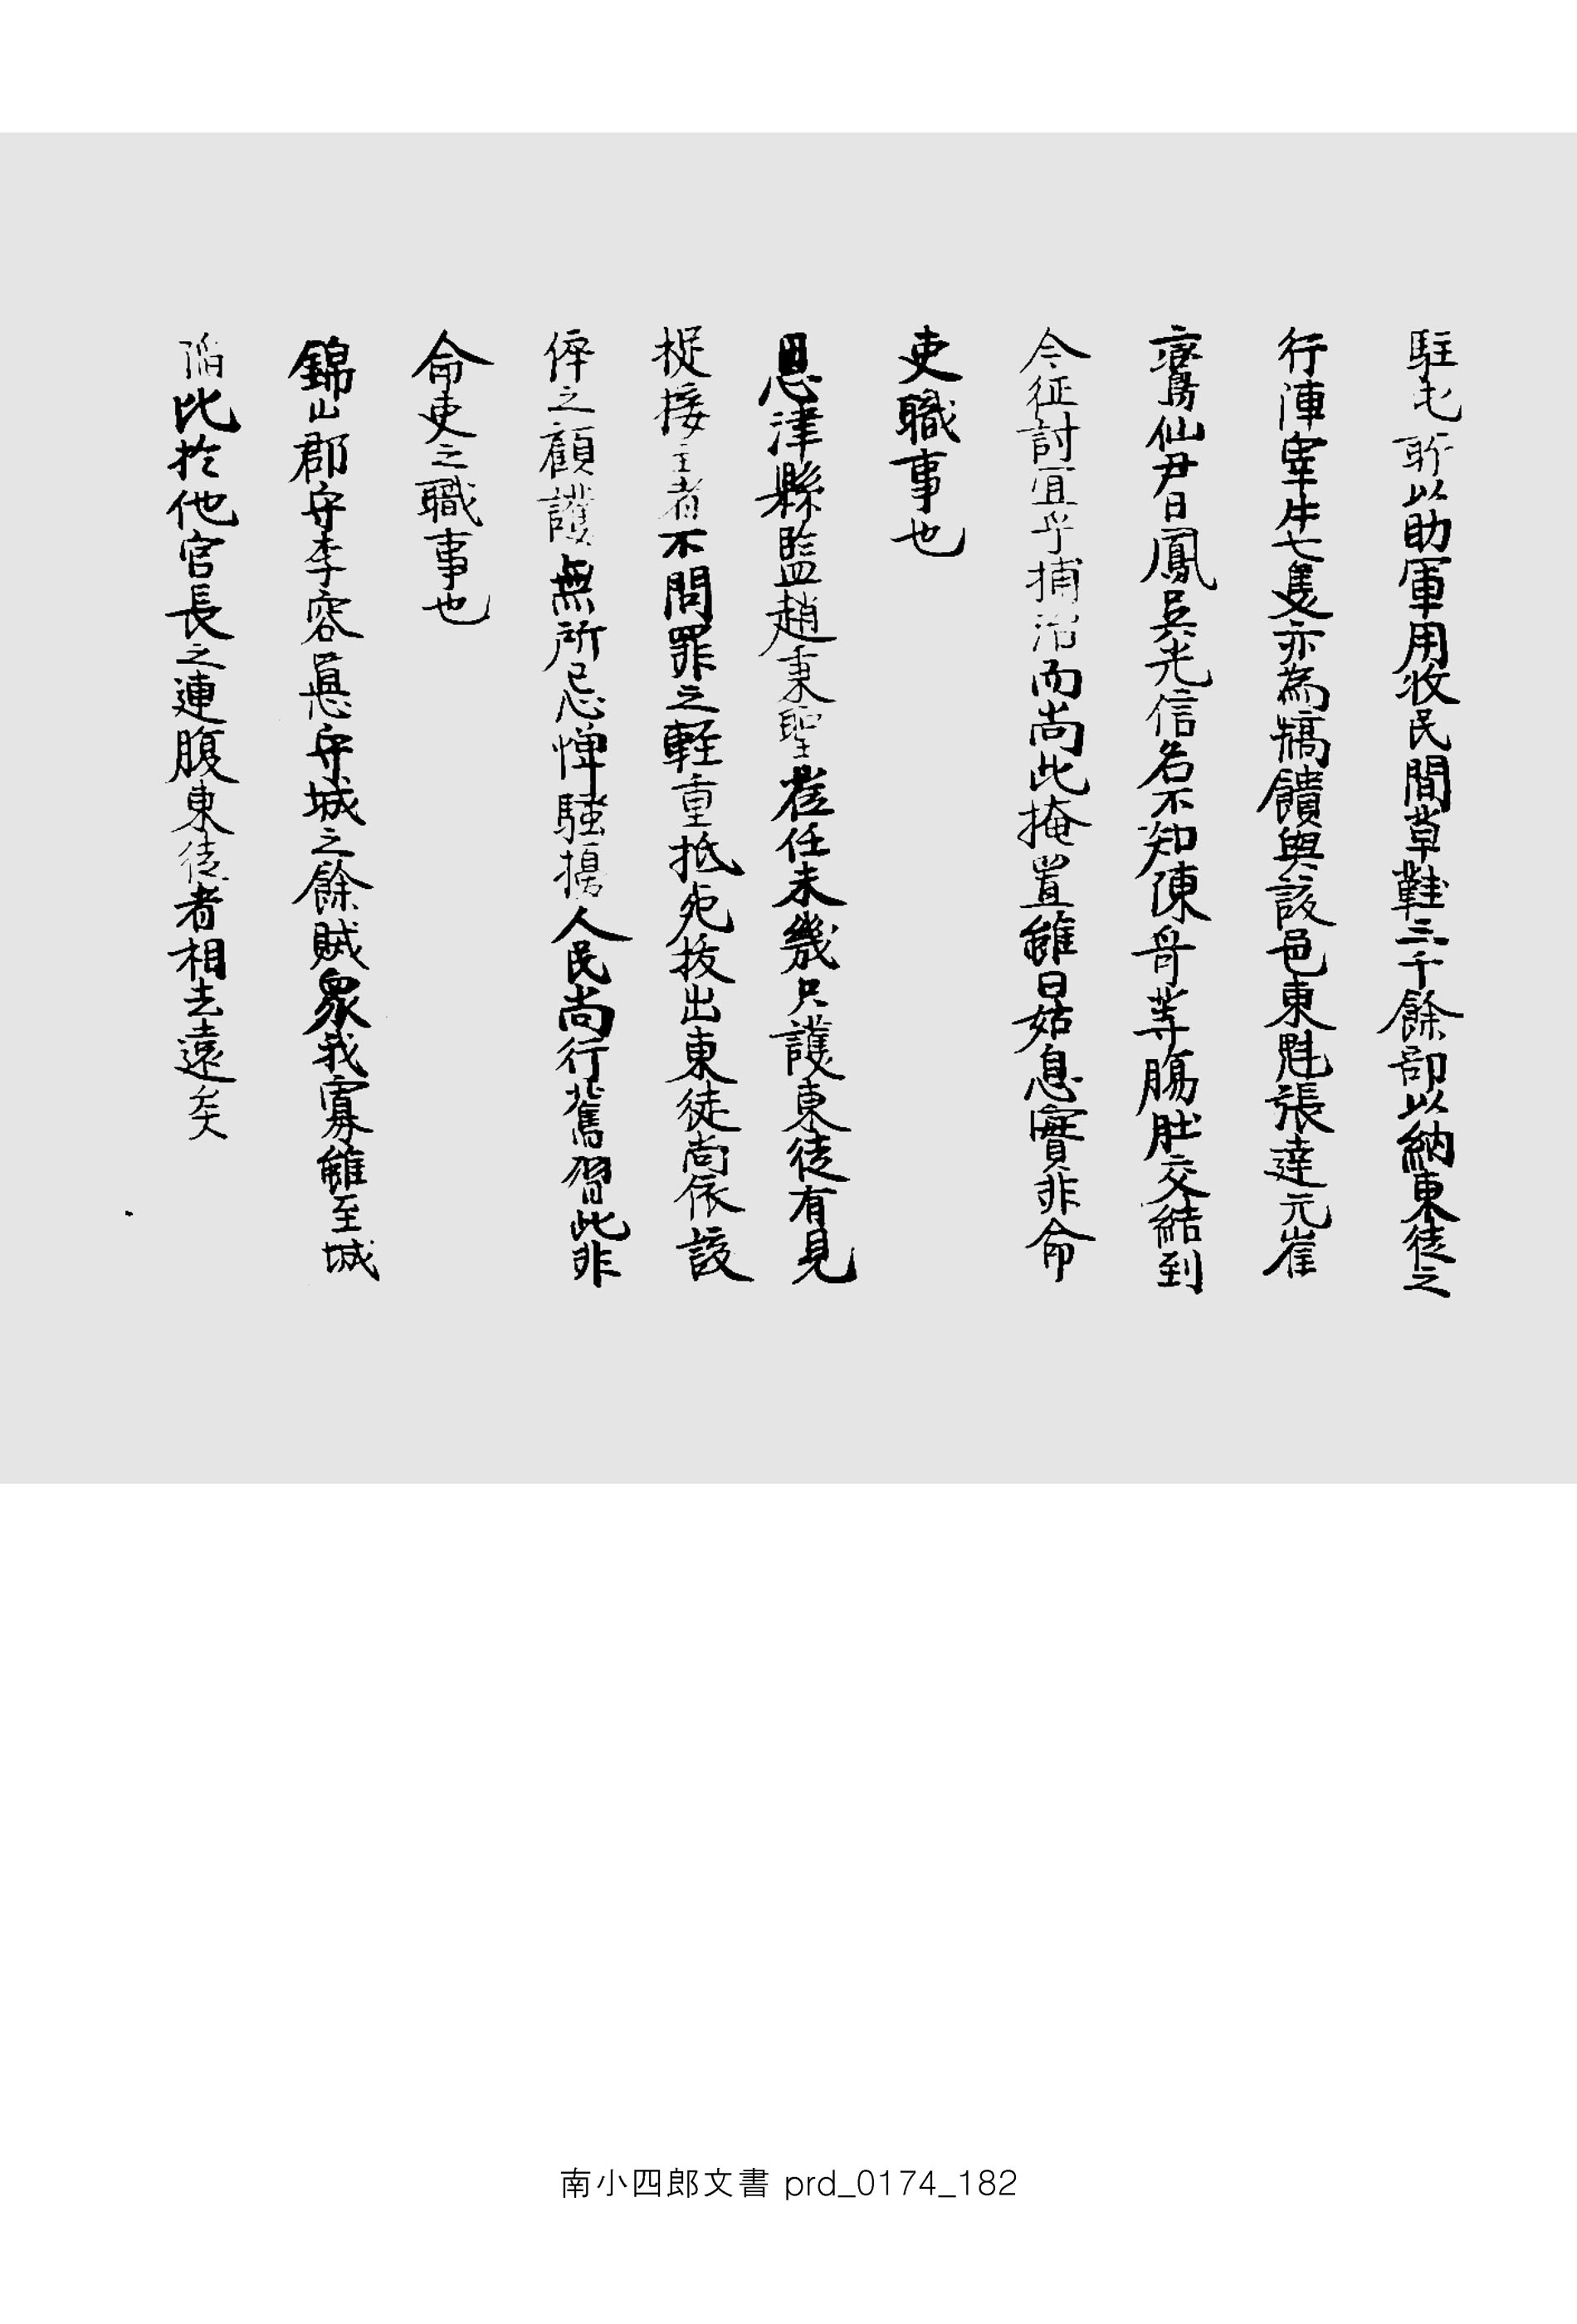 駐屯所以助軍用收民間草鞋三千餘部以納東徒之
行陣宰牛七隻亦為犒饋與該邑東魁張達元崔
鸞仙尹日鳳吳光信名不知陳哥等膓肚交結到
今征討宜乎捕治而尚此掩置雖曰姑息實非命
吏職事也
恩津縣監趙秉聖莅任未幾只護東徒有見
捉接主者不問罪之輕重抵死拔出東徒尚依該
倅之顧護無所忌憚騷擾人民尚行舊習此非
命吏之職事也
錦山郡守李容悳守城之餘賊衆我寡雖至城
陷比於他官長之連腹東徒者相去遠矣
南小四郎文書 prd_0174_182